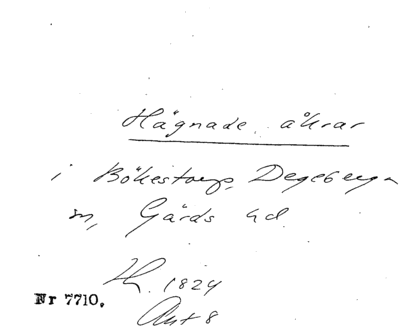 Hägnade åkrar
i Bökestorp, Degeberga
sn, Gärds hd.
1824
Nr 7710.
Akt 8